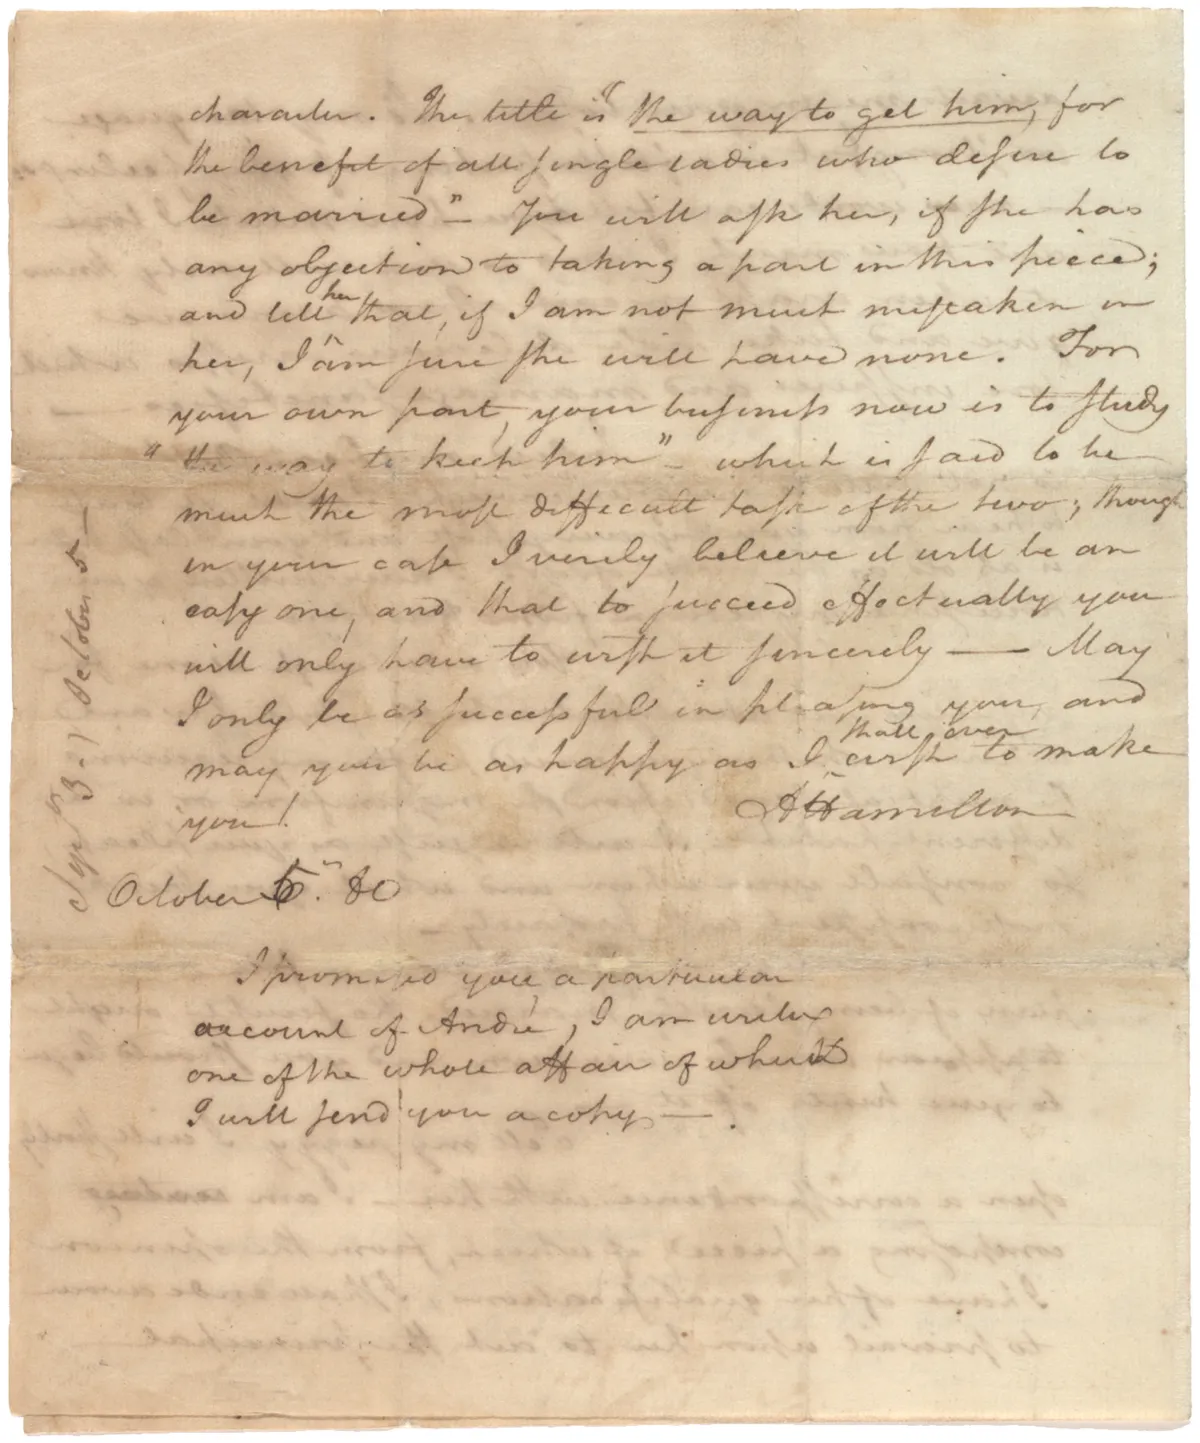 character. The title is "the way to get him, for
the benefit of all single ladies who desire to
be married" — You will ask her, if she has
any objection to taking a part in this piece;
and tell her that, if I am not much mistaken in
her, I am sure she will have none. For
your own part, your business now is to study
"the way to keep him" — which is said to be
much the most difficult task of the two; though
in your case I verily believe it will be an
easy one, and that to succeed effectually you
will only have to wish it sincerely — May
I only be as successful in pleasing you, and
may you be as happy as I shall ever wish to make
you!
AHamilton
October 5. 80
I promised you a particular
account of André, I am writing
one of the whole affair of which
I will send you a copy —
October 5 —